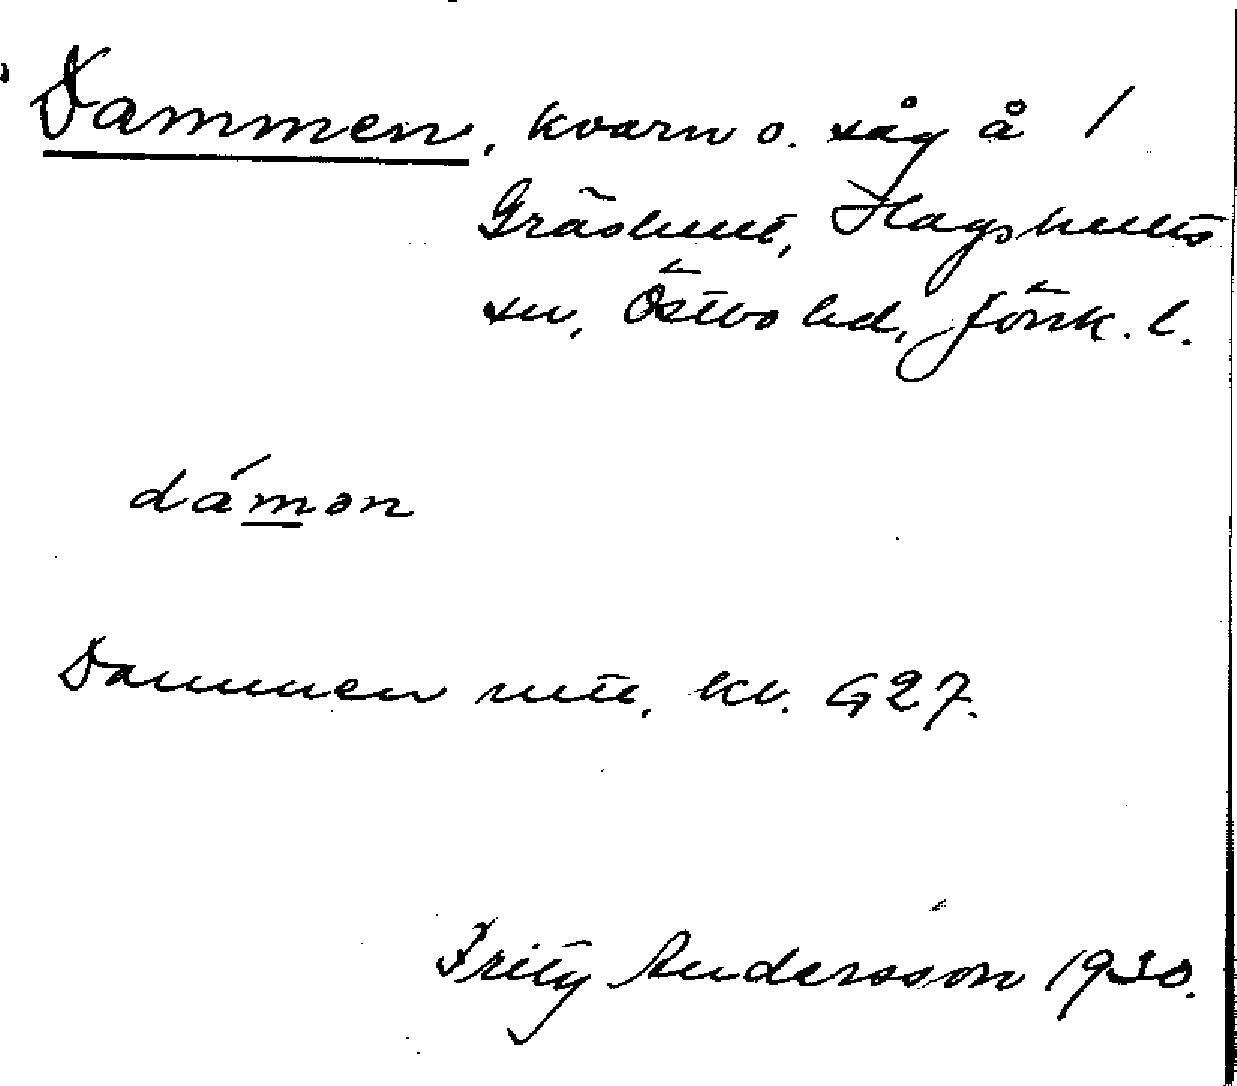 Dammen, kvarn o. såg å 1
Gräshult, Hagshults
sn, Östbo hd, Jönk. l.
dámən
Dammen mtl, kv. G27.
Fritz Andersson 1930.